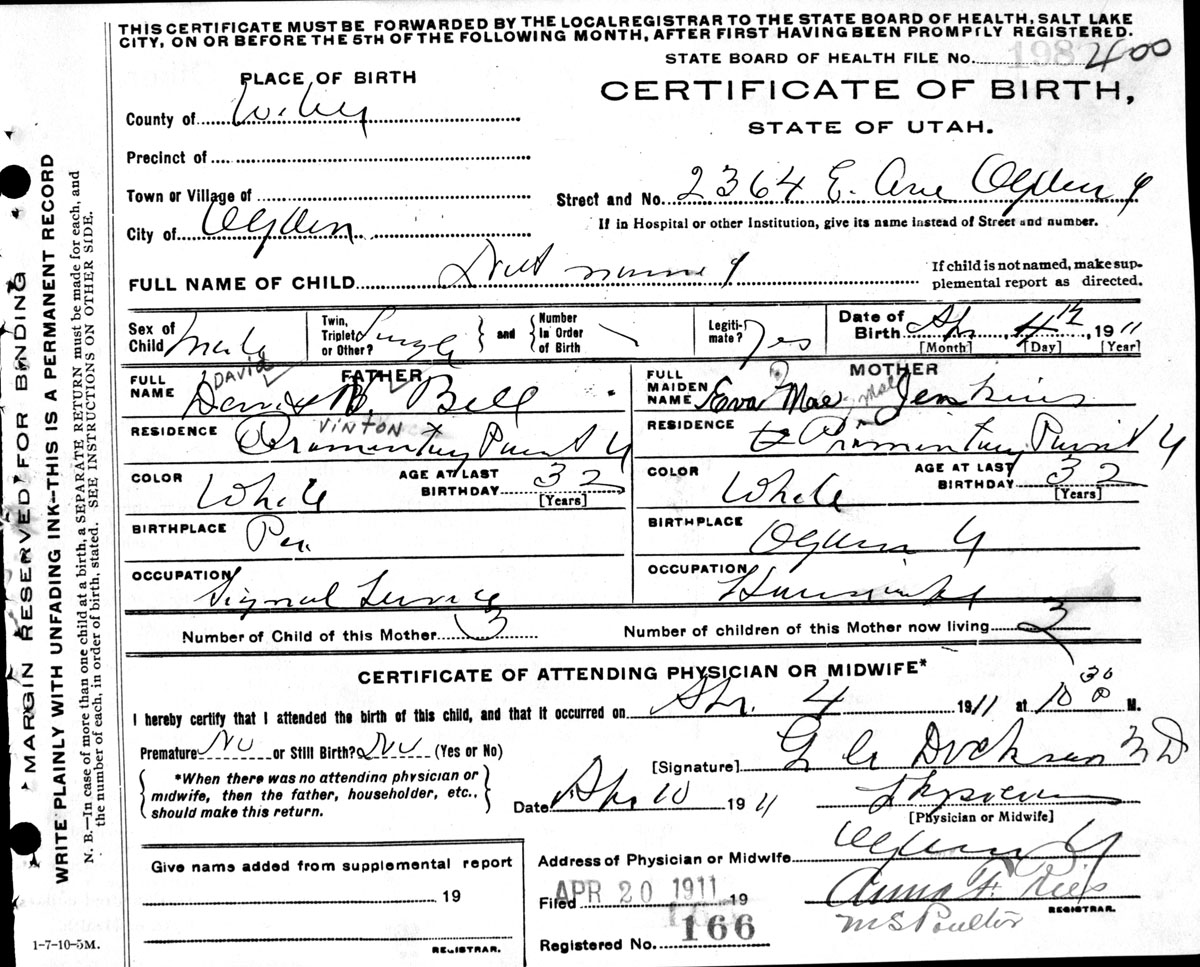 THIS CERTIFICATE MUST BE FORWARDED BY THE LOCALREGISTRAR TO THE STATE BOARD OF HEALTH, SALT LAKE
CITY, ON OR BEFORE THE 5TH OF THE FOLLOWING MONTH, AFTER FIRST HAVING BEEN PROMPTLY REGISTERED.
STATE BOARD OF HEALTH FILE No. 400
PLACE OF BIRTH
CERTIFICATE OF BIRTH,
STATE OF UTAH.
County of
Precinct of
Town or Village of
Street and No. 2364 E. Ave Ogden
City of Ogden
If in Hospital or other Institution, give its name instead of Street and number.
FULL NAME OF CHILD
If child is not named, make sup-
plemental report as directed.
Sex of Child Male
Twin, Triplet or Other? Single
and
Number in Order of Birth
Legiti- mate? Yes
Date of Birth Apr. 4th 1911
[Month] [Day] [Year]
FATHER
FULL NAME DAVID Bell
VINTON
RESIDENCE Promontary Point U
COLOR White
AGE AT LAST BIRTHDAY 32
[Years]
BIRTHPLACE
OCCUPATION Signal Service
MOTHER
FULL MAIDEN NAME Eva Mae Jenkins
RESIDENCE Promontary Point U
COLOR White
AGE AT LAST BIRTHDAY 32
[Years]
BIRTHPLACE Ogden U
OCCUPATION Housewife
Number of Child of this Mother 3
Number of children of this Mother now living
CERTIFICATE OF ATTENDING PHYSICIAN OR MIDWIFE*
I hereby certify that I attended the birth of this child, and that it occurred on Apr. 4 1911 at 10 30 M.
Premature No or Still Birth? No (Yes or No)
*When there was no attending physician or
midwife, then the father, householder, etc.,
should make this return.
[Signature] M D
Date Apr 10 1911
Physician
[Physician or Midwife]
Address of Physician or Midwife Ogden U
Give name added from supplemental report
19
REGISTRAR.
Filed APR 20 1911 19
Anna F Ries
REGISTRAR.
M S Poulter
Registered No. 166
1-7-10-5M.
MARGIN RESERVED FOR BINDING
WRITE PLAINLY WITH UNFADING INK--THIS IS A PERMANENT RECORD
N. B.—In case of more than one child at a birth, a SEPARATE RETURN must be made for each, and
the number of each, in order of birth, stated. SEE INSTRUCTIONS ON OTHER SIDE.